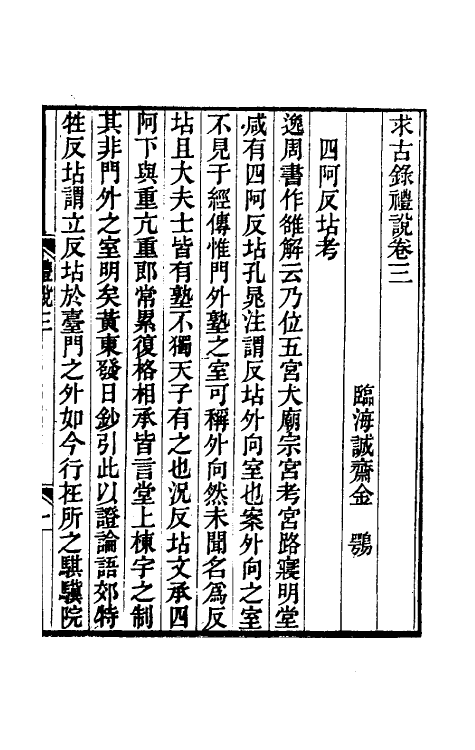 求古錄禮說卷三
臨海誠齋金鶚
四阿反坫考
逸周書作雒解云乃位五宮大廟宗宮考宮路寢明堂
咸有四阿反坫孔晁注謂反坫外向室也案外向之室
不見于經傳惟門外塾之室可稱外向然未聞名爲反
坫且大夫士皆有塾不獨天子有之也況反坫文承四
阿下與重亢重郎常累復格相承皆言堂上棟宇之制
其非門外之室明矣黃東發日鈔引此以證論語郊特
牲反坫謂立反坫於臺門之外如今行在所之騏驥院
禮說三
一